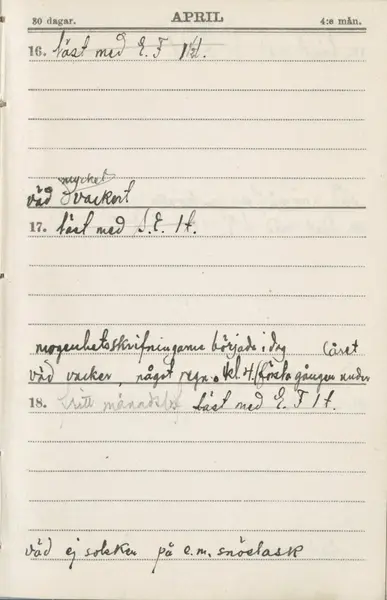 30 dagar. APRIL 4:e mån.
16. läst med E. F 1½t.
mycket
väd vackert
17. läst med S. E. 1t.
mogenhetsskrifningarna började i dag (året
väd vacker, något regn. kl. 4. (första gången under
18. fritt månadslof läst med E. F 1t.
väd ej solsken på e.m. snöslask